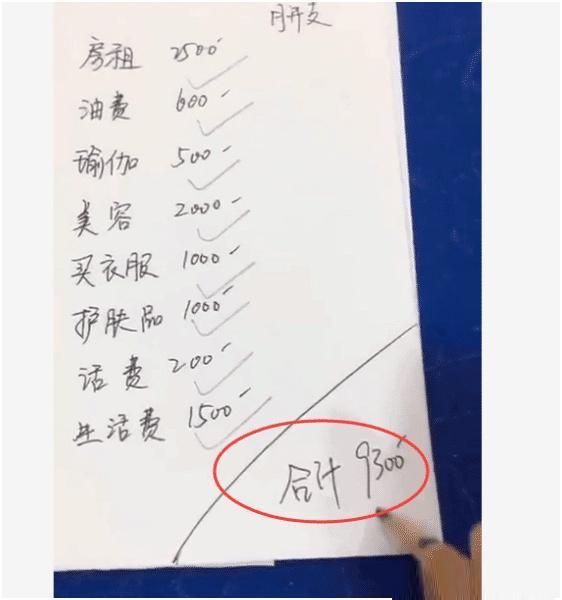 月开支
房租 2500-
油费 600-
瑜伽 500-
美容 2000-
买衣服 1000-
护肤品 1000-
话费 200-
生活费 1500-
合计 9300-